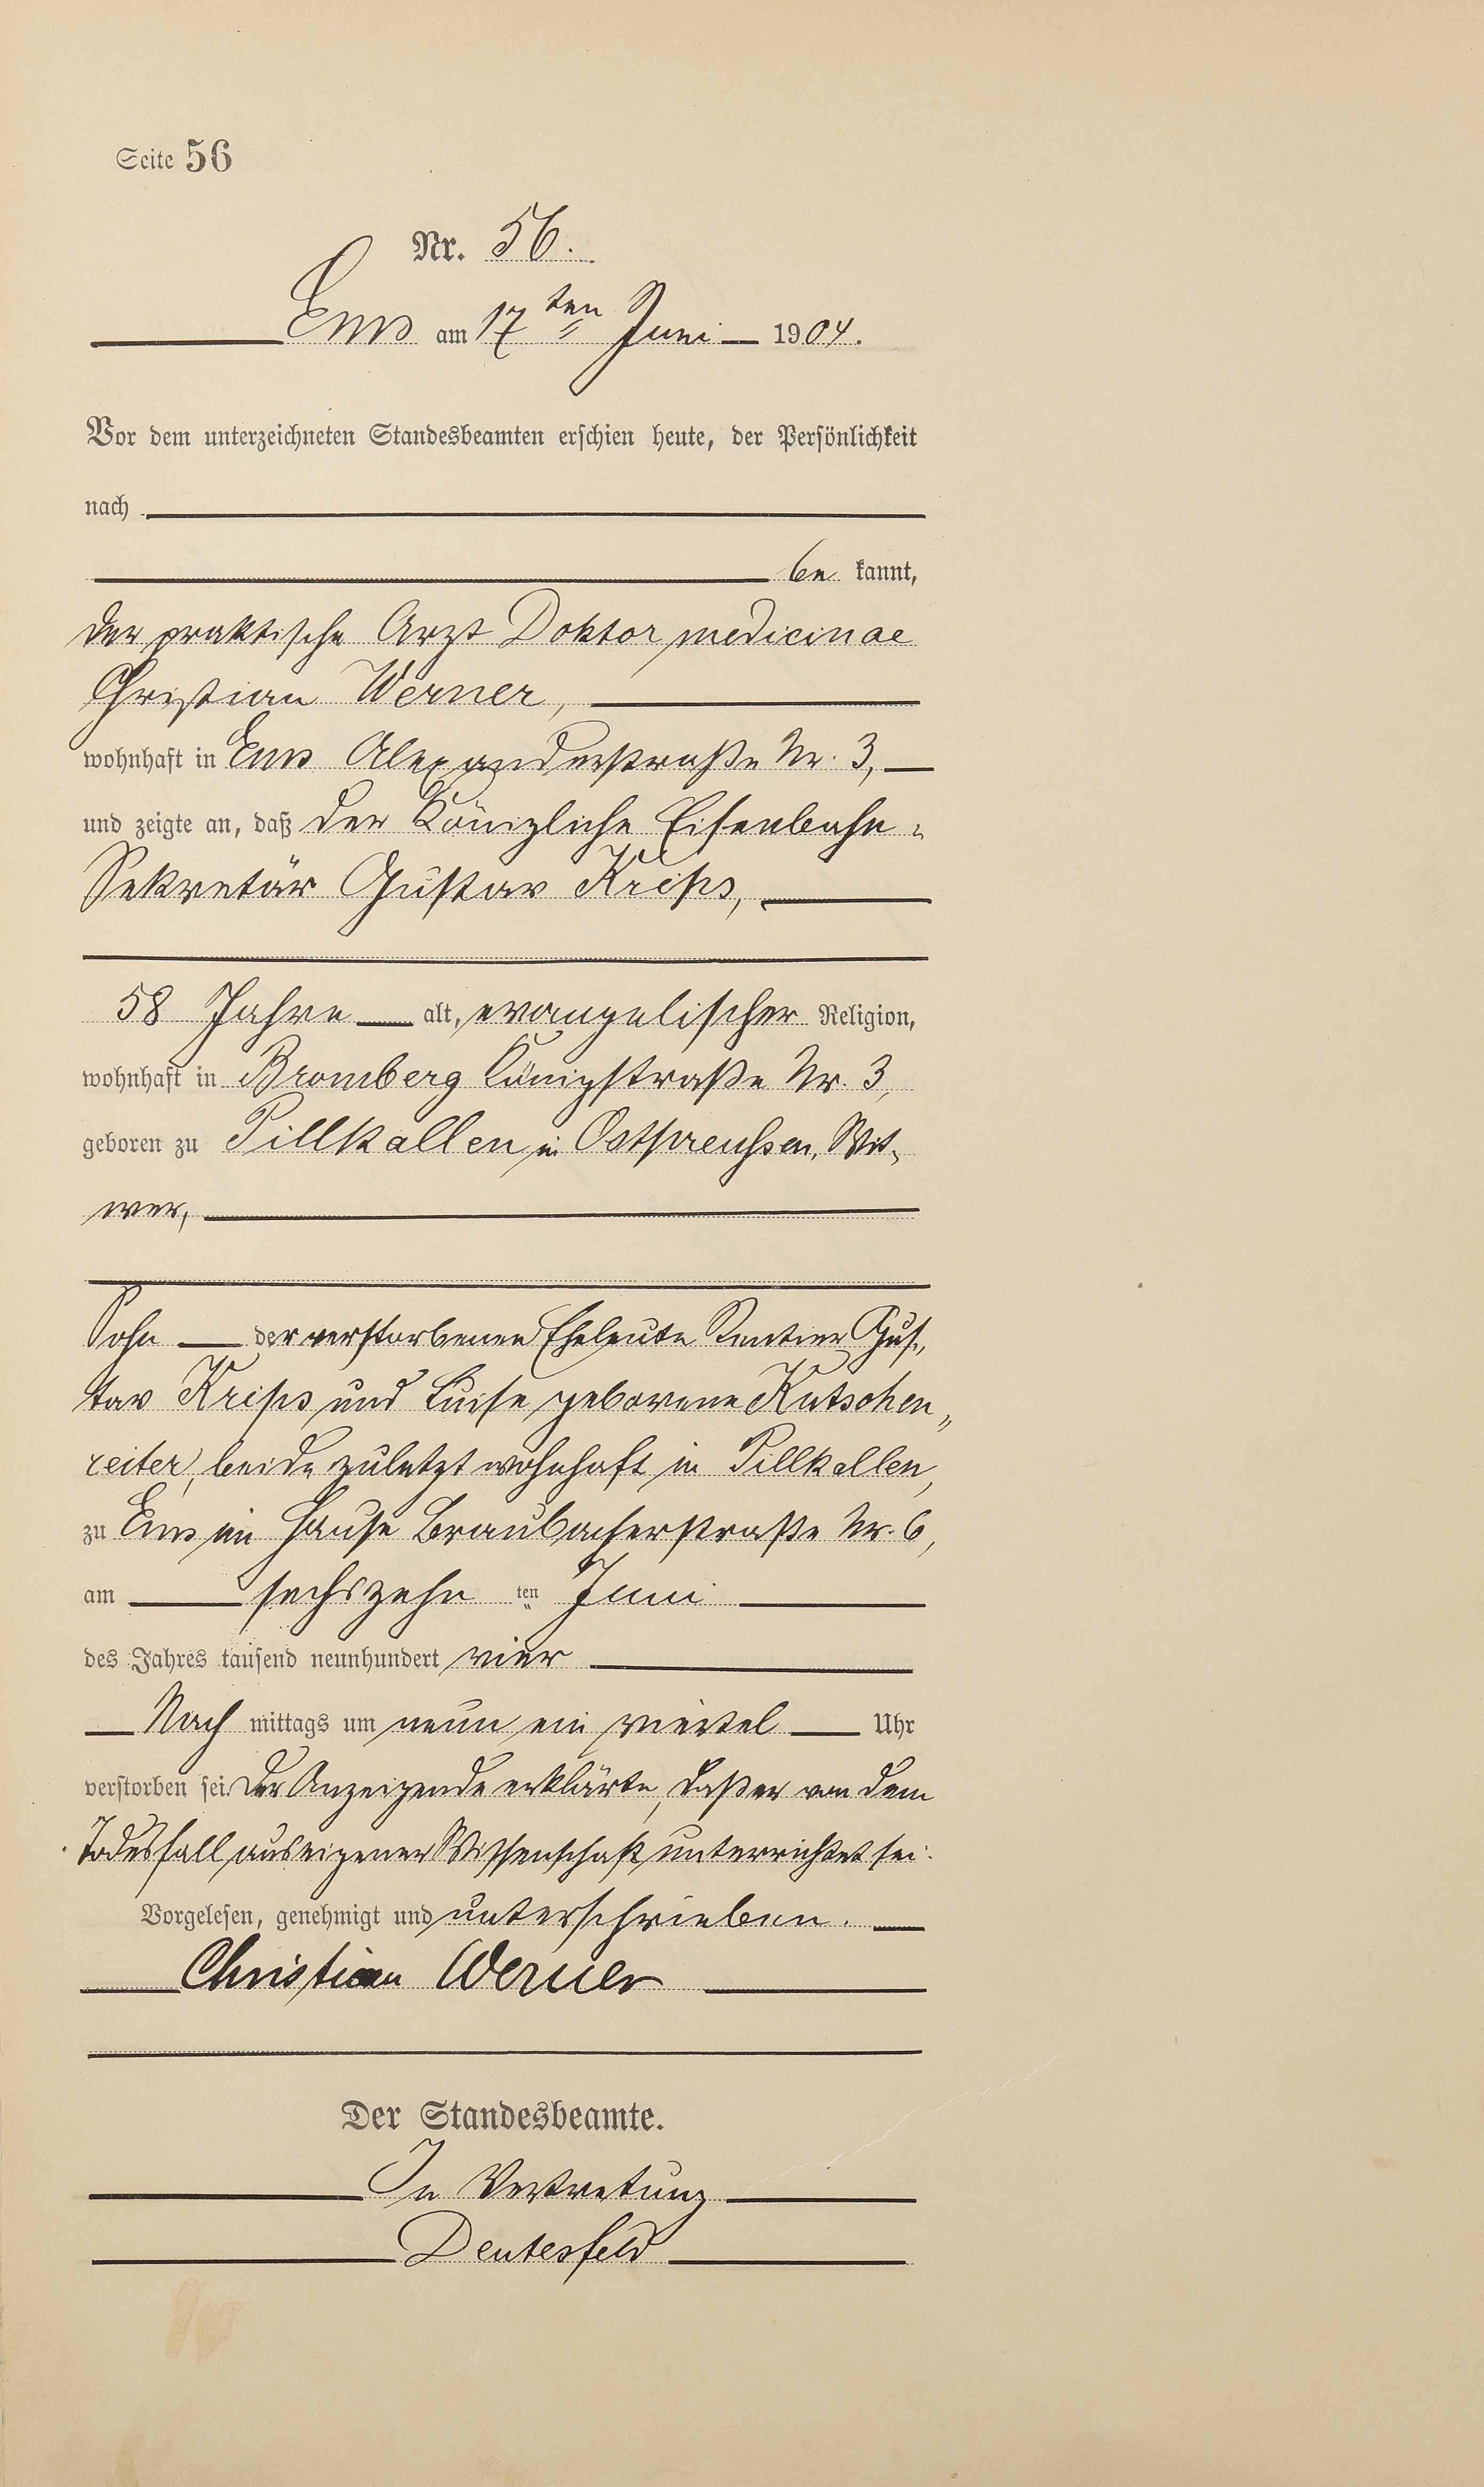 Seite 56
Nr. 56.
Ems am 17ten Juni 1904.
Vor dem unterzeichneten Standesbeamten erschien heute, der Persönlichkeit
nach
be kannt,
der praktische Arzt Doktor medicinae
Christian Werner,
wohnhaft in Ems Alexanderstraße Nr. 3,
und zeigte an, daß der Königliche Eisenbahn-
Sekretär Gustav Krips,
58 Jahre alt, evangelischer Religion,
wohnhaft in Bromberg Königstraße Nr. 3,
geboren zu Pillkallen in Ostpreußen, Wit-
wer,
Sohn der verstorbenen Eheleute Rentner Gus-
tav Krips und Luise geborene Kutschen-
reiter, beide zuletzt wohnhaft in Pillkallen,
zu Ems im Hause Braubacherstraße Nr. 6,
am sechszehn ten Juni
des Jahres tausend neunhundert vier
Nach mittags um neun ein viertel Uhr
verstorben sei. Der Anzeigende erklärte, daß er von dem
Todesfall aus eigener Wissenschaft unterrichtet sei.
Vorgelesen, genehmigt und unterschrieben.
Christian Werner
Der Standesbeamte.
In Vertretung
Deutesfeld